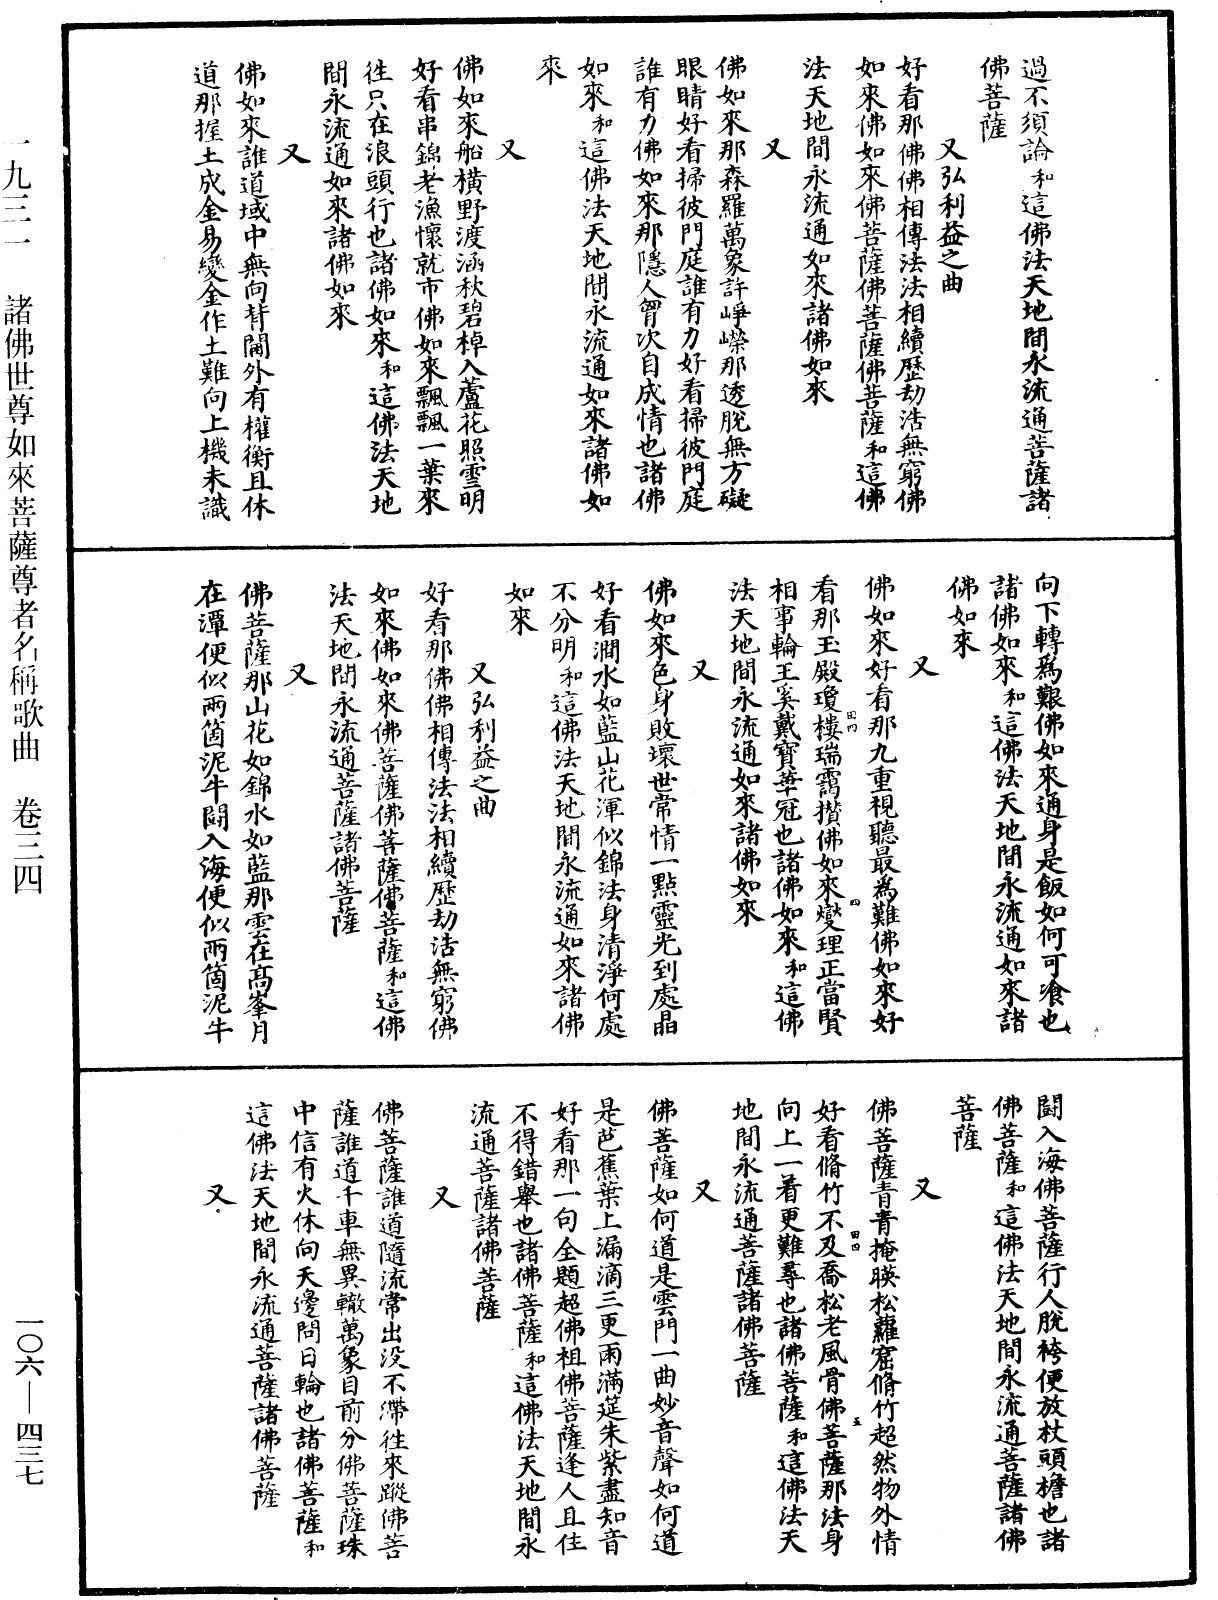 過不須論和這佛法天地間永流通菩薩諸
佛菩薩
又弘利益之曲
好看那佛佛相傳法法相續歷劫活無窮佛
如來佛如來佛菩薩佛菩薩佛菩薩和這佛
法天地間永流通如來諸佛如來
又
佛如來那森羅萬象許崢嶸那透脫無方礙
眼睛好看掃彼門庭誰有力好看掃彼門庭
誰有力佛如來那隱人胷次自成情也諸佛
如來和這佛法天地間永流通如來諸佛如
來
又
佛如來船橫野渡涵秋碧棹入蘆花照雪明
好看串錦老漁懷就市佛如來飄飄一葉來
往只在浪頭行也諸佛如來和這佛法天地
間永流通如來諸佛如來
又
佛如來誰道域中無向背閫外有權衡且休
道那握土成金易變金作土難向上機未識
向下轉為艱佛如來通身是飯如何可飡也
諸佛如來和這佛法天地間永流通如來諸
佛如來
又
佛如來好看那九重視聽最為難佛如來好
看那玉殿瓊樓瑞靄攢佛如來燮理正當賢
相事輪王奚戴寶華冠也諸佛如來和這佛
法天地間永流通如來諸佛如來
又
佛如來色身敗壞世常情一點靈光到處晶
好看澗水如藍山花渾似錦法身清淨何處
不分明和這佛法天地間永流通如來諸佛
如來
又弘利益之曲
好看那佛佛相傳法法相續歷劫活無窮佛
如來佛如來佛菩薩佛菩薩佛菩薩和這佛
法天地間永流通菩薩諸佛菩薩
又
佛菩薩那山花如錦水如藍那雲在高峯月
在潭便似兩箇泥牛鬪入海便似兩箇泥牛
鬪入海佛菩薩行人脫袴便放杖頭檐也諸
佛菩薩和這佛法天地間永流通菩薩諸佛
菩薩
又
佛菩薩青青掩暎松蘿窟脩竹超然物外情
好看脩竹不及喬松老風骨佛菩薩那法身
向上一着更難尋也諸佛菩薩和這佛法天
地間永流通菩薩諸佛菩薩
又
佛菩薩如何道是雲門一曲妙音聲如何道
是芭蕉葉上漏滴三更雨滿筵朱紫盡知音
好看那一句全題超佛祖佛菩薩逢人且住
不得錯舉也諸佛菩薩和這佛法天地間永
流通菩薩諸佛菩薩
又
佛菩薩誰道隨流常出没不滯往來蹤佛菩
薩誰道千車無異轍萬象目前分佛菩薩珠
中信有火休向天邊問日輪也諸佛菩薩和
這佛法天地間永流通菩薩諸佛菩薩
又
一九三一 諸佛世尊如來菩薩尊者名稱歌曲 卷三四
一〇六—四三七